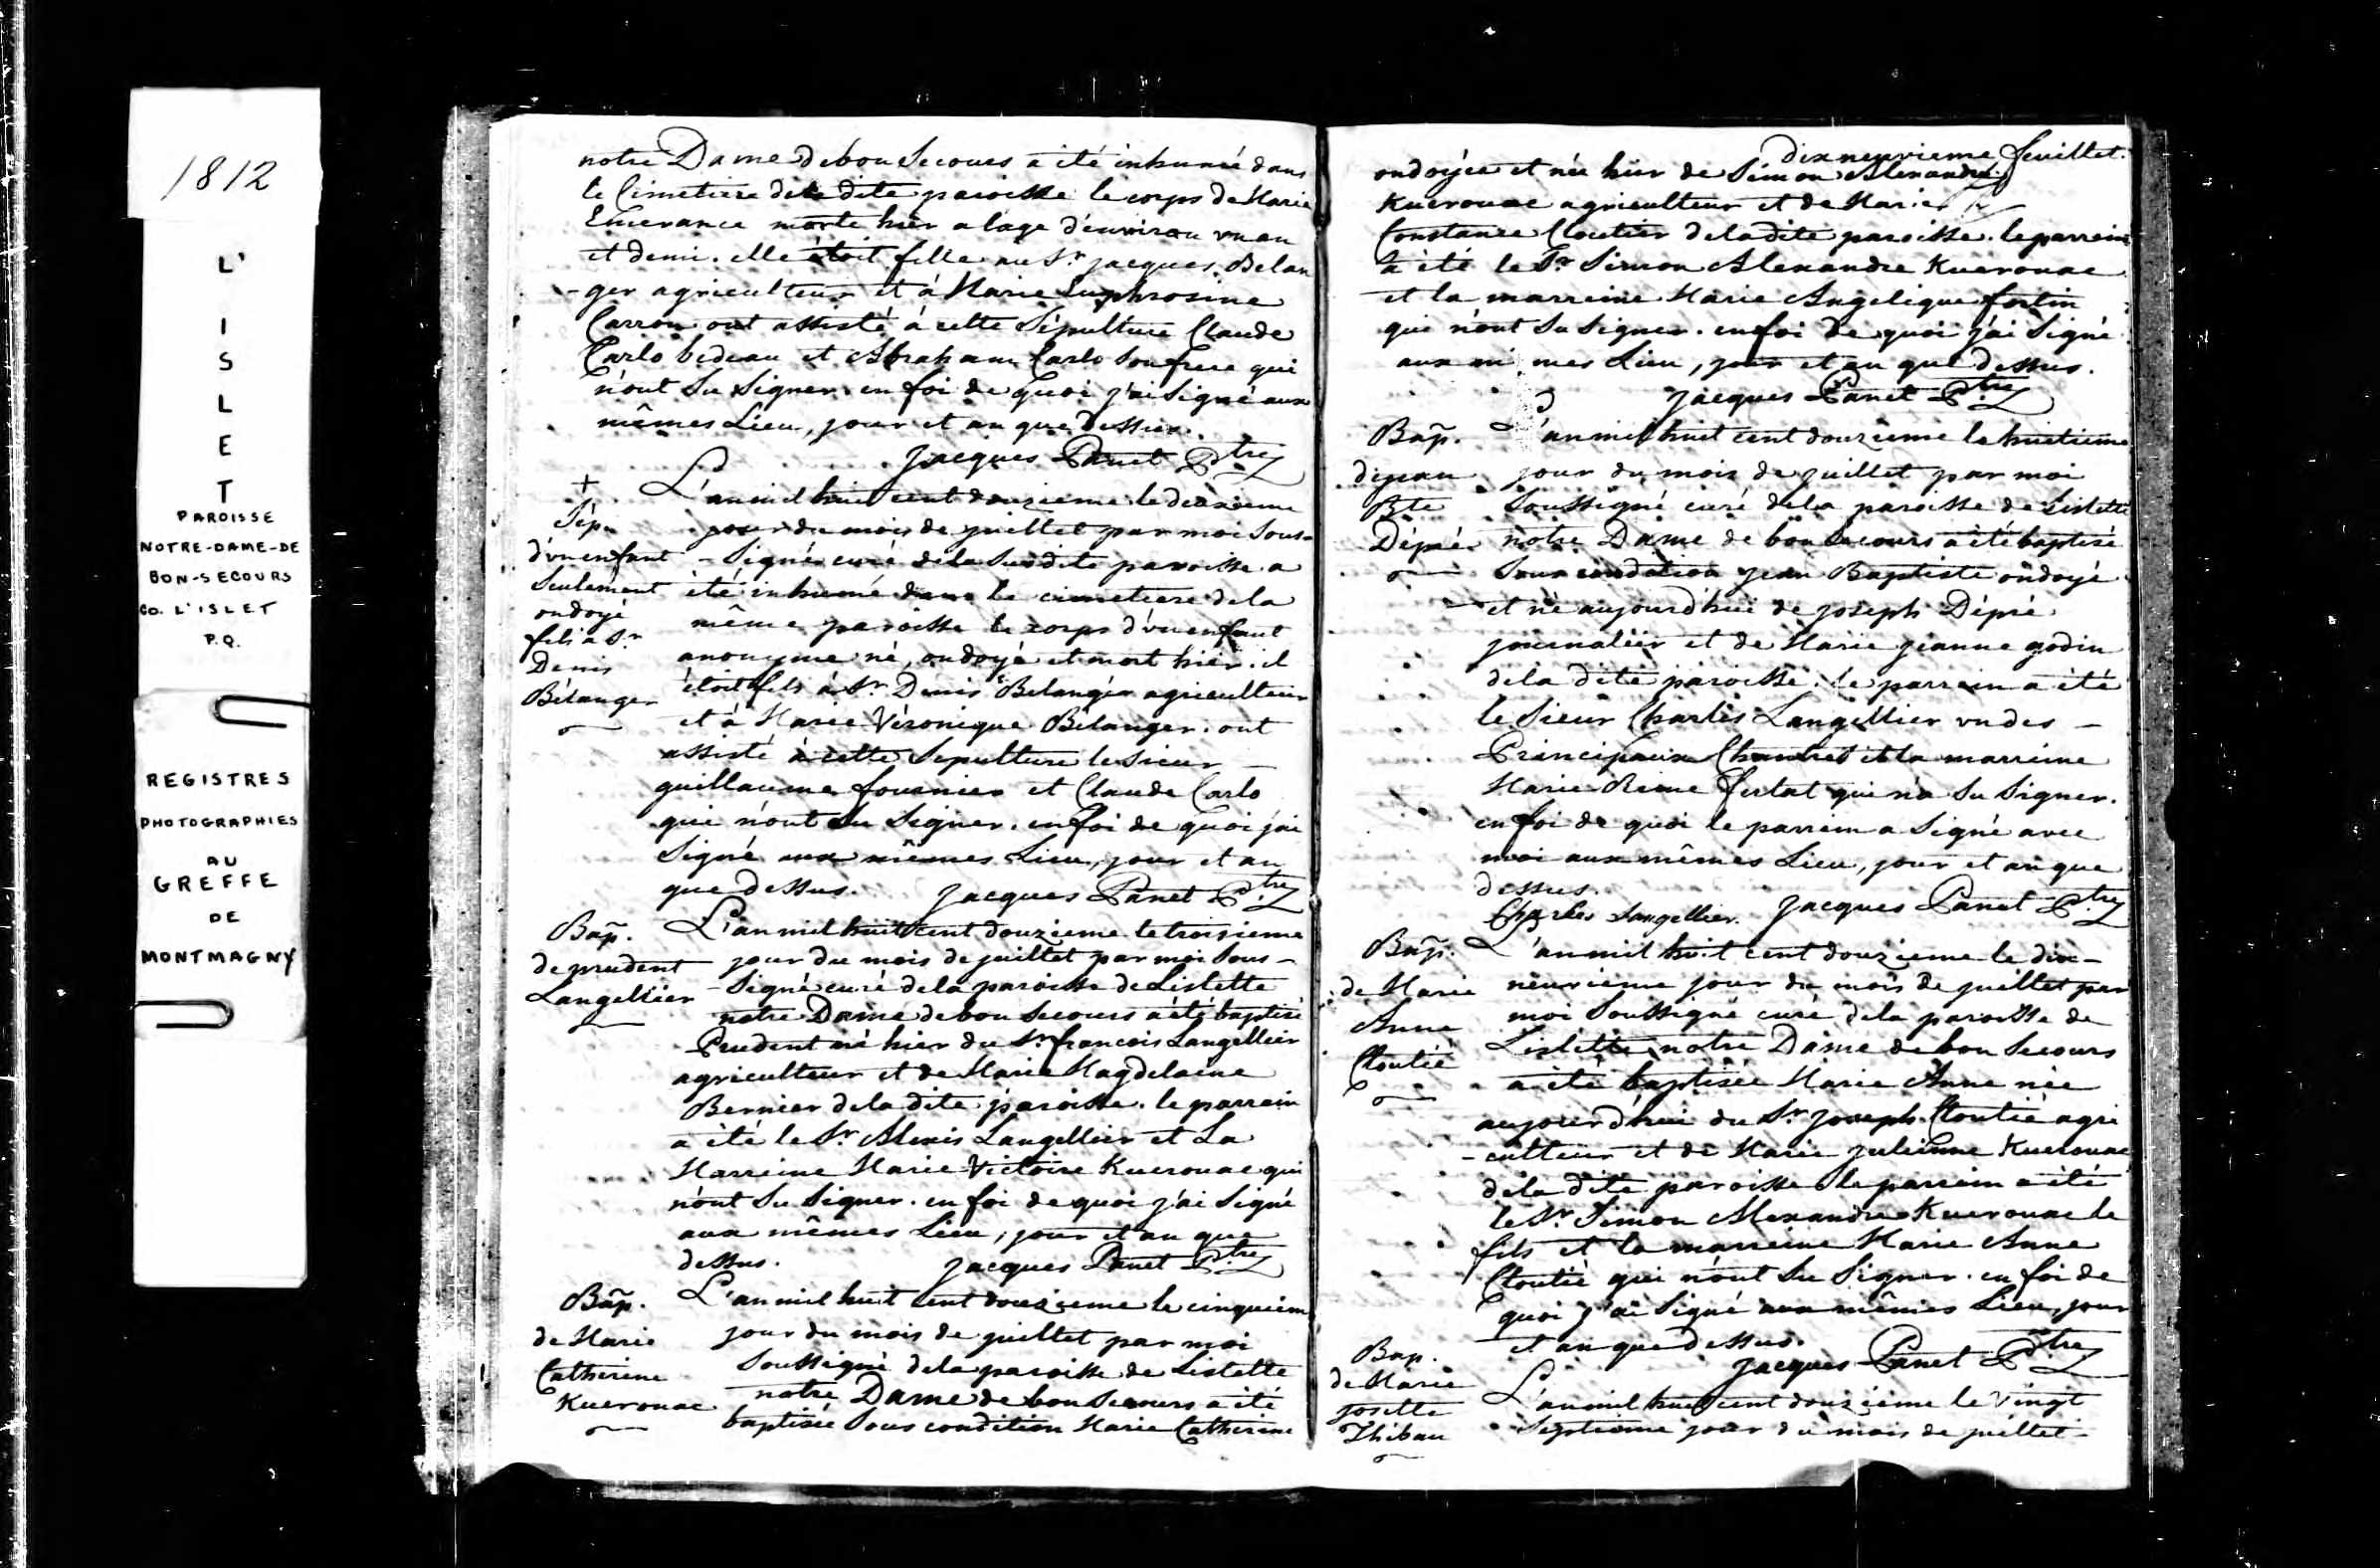 1812
L'
I
S
L
E
T
PAROISSE
NOTRE-DAME-DE
BON-SECOURS
CO. L'ISLET
P.Q.
REGISTRES
PHOTOGRAPHIES
AU
GREFFE
DE
MONTMAGNY
notre Dame de bon Secours a été inhumé dans
le Cimetiere de la dite paroisse le corps de Marie
Emerance morte hier a l'age d'environ un an
et demi. elle étoit fille au Sr. jacques Belan
-ger agriculteur et à Marie Euphrosine
Carron ont assisté à cette Sépulture Claude
Carlo bedeau et Abraham Carlo Son frere qui
n'ont Su Signer en foi de quoi j'ai Signé aux
mêmes Lieu, jour et an que dessus.
Jacques Panet Ptre
+
Sép.
d'un enfant
Seulement
ondoyé
fils a Sr.
Denis
Bélanger
L'an mil huit cent douzieme le deuxieme
jour du mois de juillet par moi Sous-
-Signé curé de la Susdite paroisse a
été inhumé dans le cimetiere de la
même paroisse le corps d'un enfant
anonyme né, ondoyé et mort hier. il
étoit fils à Sr. Denis Belanger agriculteur
et à Marie Véronique Bélanger. ont
assisté à cette Sepulture le Sieur
guillaume fournier et Claude Carlo
qui n'ont Su Signer. en foi de quoi j'ai
Signé aux mêmes Lieu, jour et an
que dessus. Jacques Panet Ptre
Bap.
de prudent
Langellier
L'an mil huit cent douzieme le troisieme
jour du mois de juillet par moi Sous-
-Signé curé de la paroisse de Lislette
notre Dame de bon Secours a été baptisé
Prudent né hier du Sr. francois Langellier
agriculteur et de Marie Magdelaine
Bernier de la dite paroisse. le parrain
a été le Sr. Alexis Langellier et La
Marreine Marie Victoire Kuerouac qui
n'ont Su Signer. en foi de quoi j'ai Signé
aux mêmes Lieu, jour et an que
dessus. Jacques Panet Ptre
Bap.
de Marie
Catherine
Kuerouac
L'an mil huit cent douzieme le cinquieme
jour du mois de juillet par moi
Soussigné de la paroisse de Lislette
notre Dame de bon Secours a été
baptisée Sous condition Marie Catherine
dix neuvieme feuillet.
ondoyée et née hier de Simon Alexandre
Kuerouac agriculteur et de Marie
Constance Cloutier de la dite paroisse. le parrein
a été le Sr. Simon Alexandre Kuerouac
et la marreine Marie Angelique fortin
qui n'ont Su Signer. en foi de quoi j'ai Signé
aux mi mes Lieu, jour et an que dessus.
Jacques Panet Ptre
Bap.
de jean
Bte
Dépré
L'an mil huit cent douzieme le huitieme
jour du mois de juillet par moi
Soussigné curé de la paroisse de Lislette
notre Dame de bon Secours a été baptisé
Sous condition jean Baptiste ondoyé
et né aujourd'hui de joseph Dépré
journalier et de Marie jeanne godin
de la dite paroisse. le parrain a été
le Sieur Charles Langellier un des -
Principaux Chantres et la marreine
Marie Reine qui n'a Su Signer.
en foi de quoi le parrein a Signé avec
moi aux mêmes Lieu, jour et an que
dessus.
Charles Langellier. Jacques Panet Ptre
Bap.
de Marie
Anne
Cloutié
L'an mil huit cent douzieme le dix-
neuvieme jour du mois de juillet par
moi Soussigné curé de la paroisse de
Lislette notre Dame de bon Secours
a été baptisée Marie Anne née
aujourd'hui du Sr. joseph Cloutié agri
-culteur et de Marie julienne Kuerouac
de la dite paroisse le parrein a été
le Sr. Simon Alexandre Kuerouac le
fils et la marreine Marie Anne
Cloutié qui n'ont Su Signer. en foi de
quoi j'ai Signé aux mêmes Lieu, jour
et an que dessus.
Jacques Panet Ptre
Bap.
de Marie
josette
Thibau
L'an mil huit cent douzieme le vingt
Septieme jour du mois de juillet